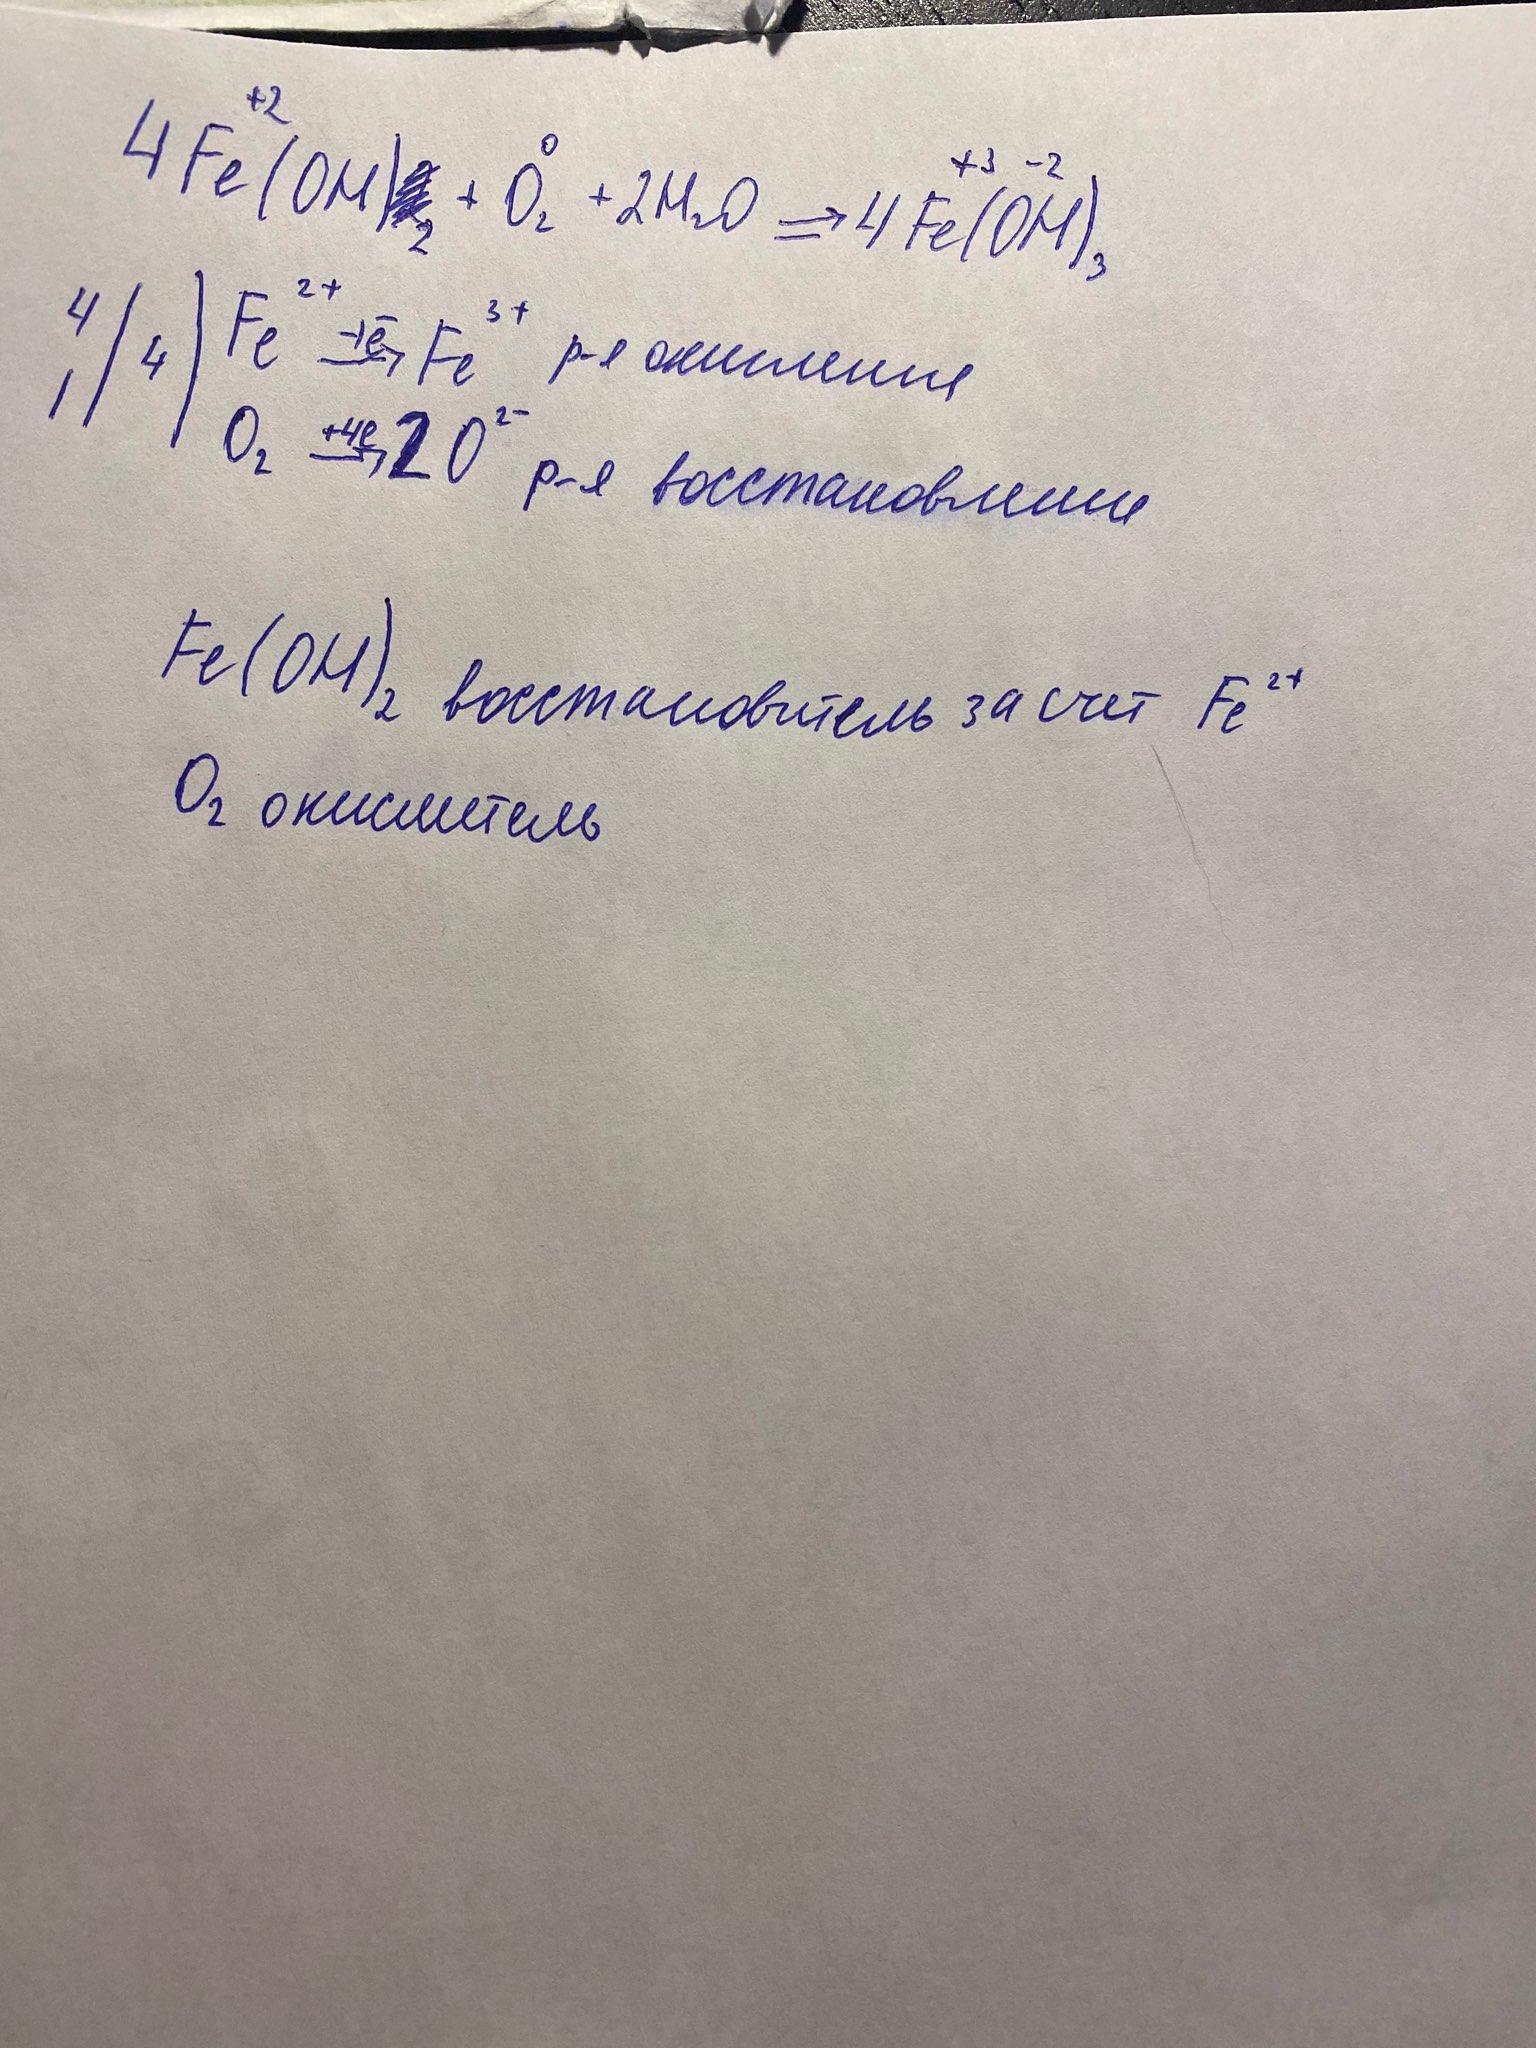 4Fe⁺²(OH)₂ + O₂⁰ + 2H₂O ⇒ 4Fe⁺³(O⁻²H)₃
4 / 4 | Fe²⁺ –1e⁻→ Fe³⁺ р-я окисления
1 / | O₂ +4e→ 2O²⁻ р-я восстановления
Fe(OH)₂ восстановитель за счет Fe²⁺
O₂ окислитель